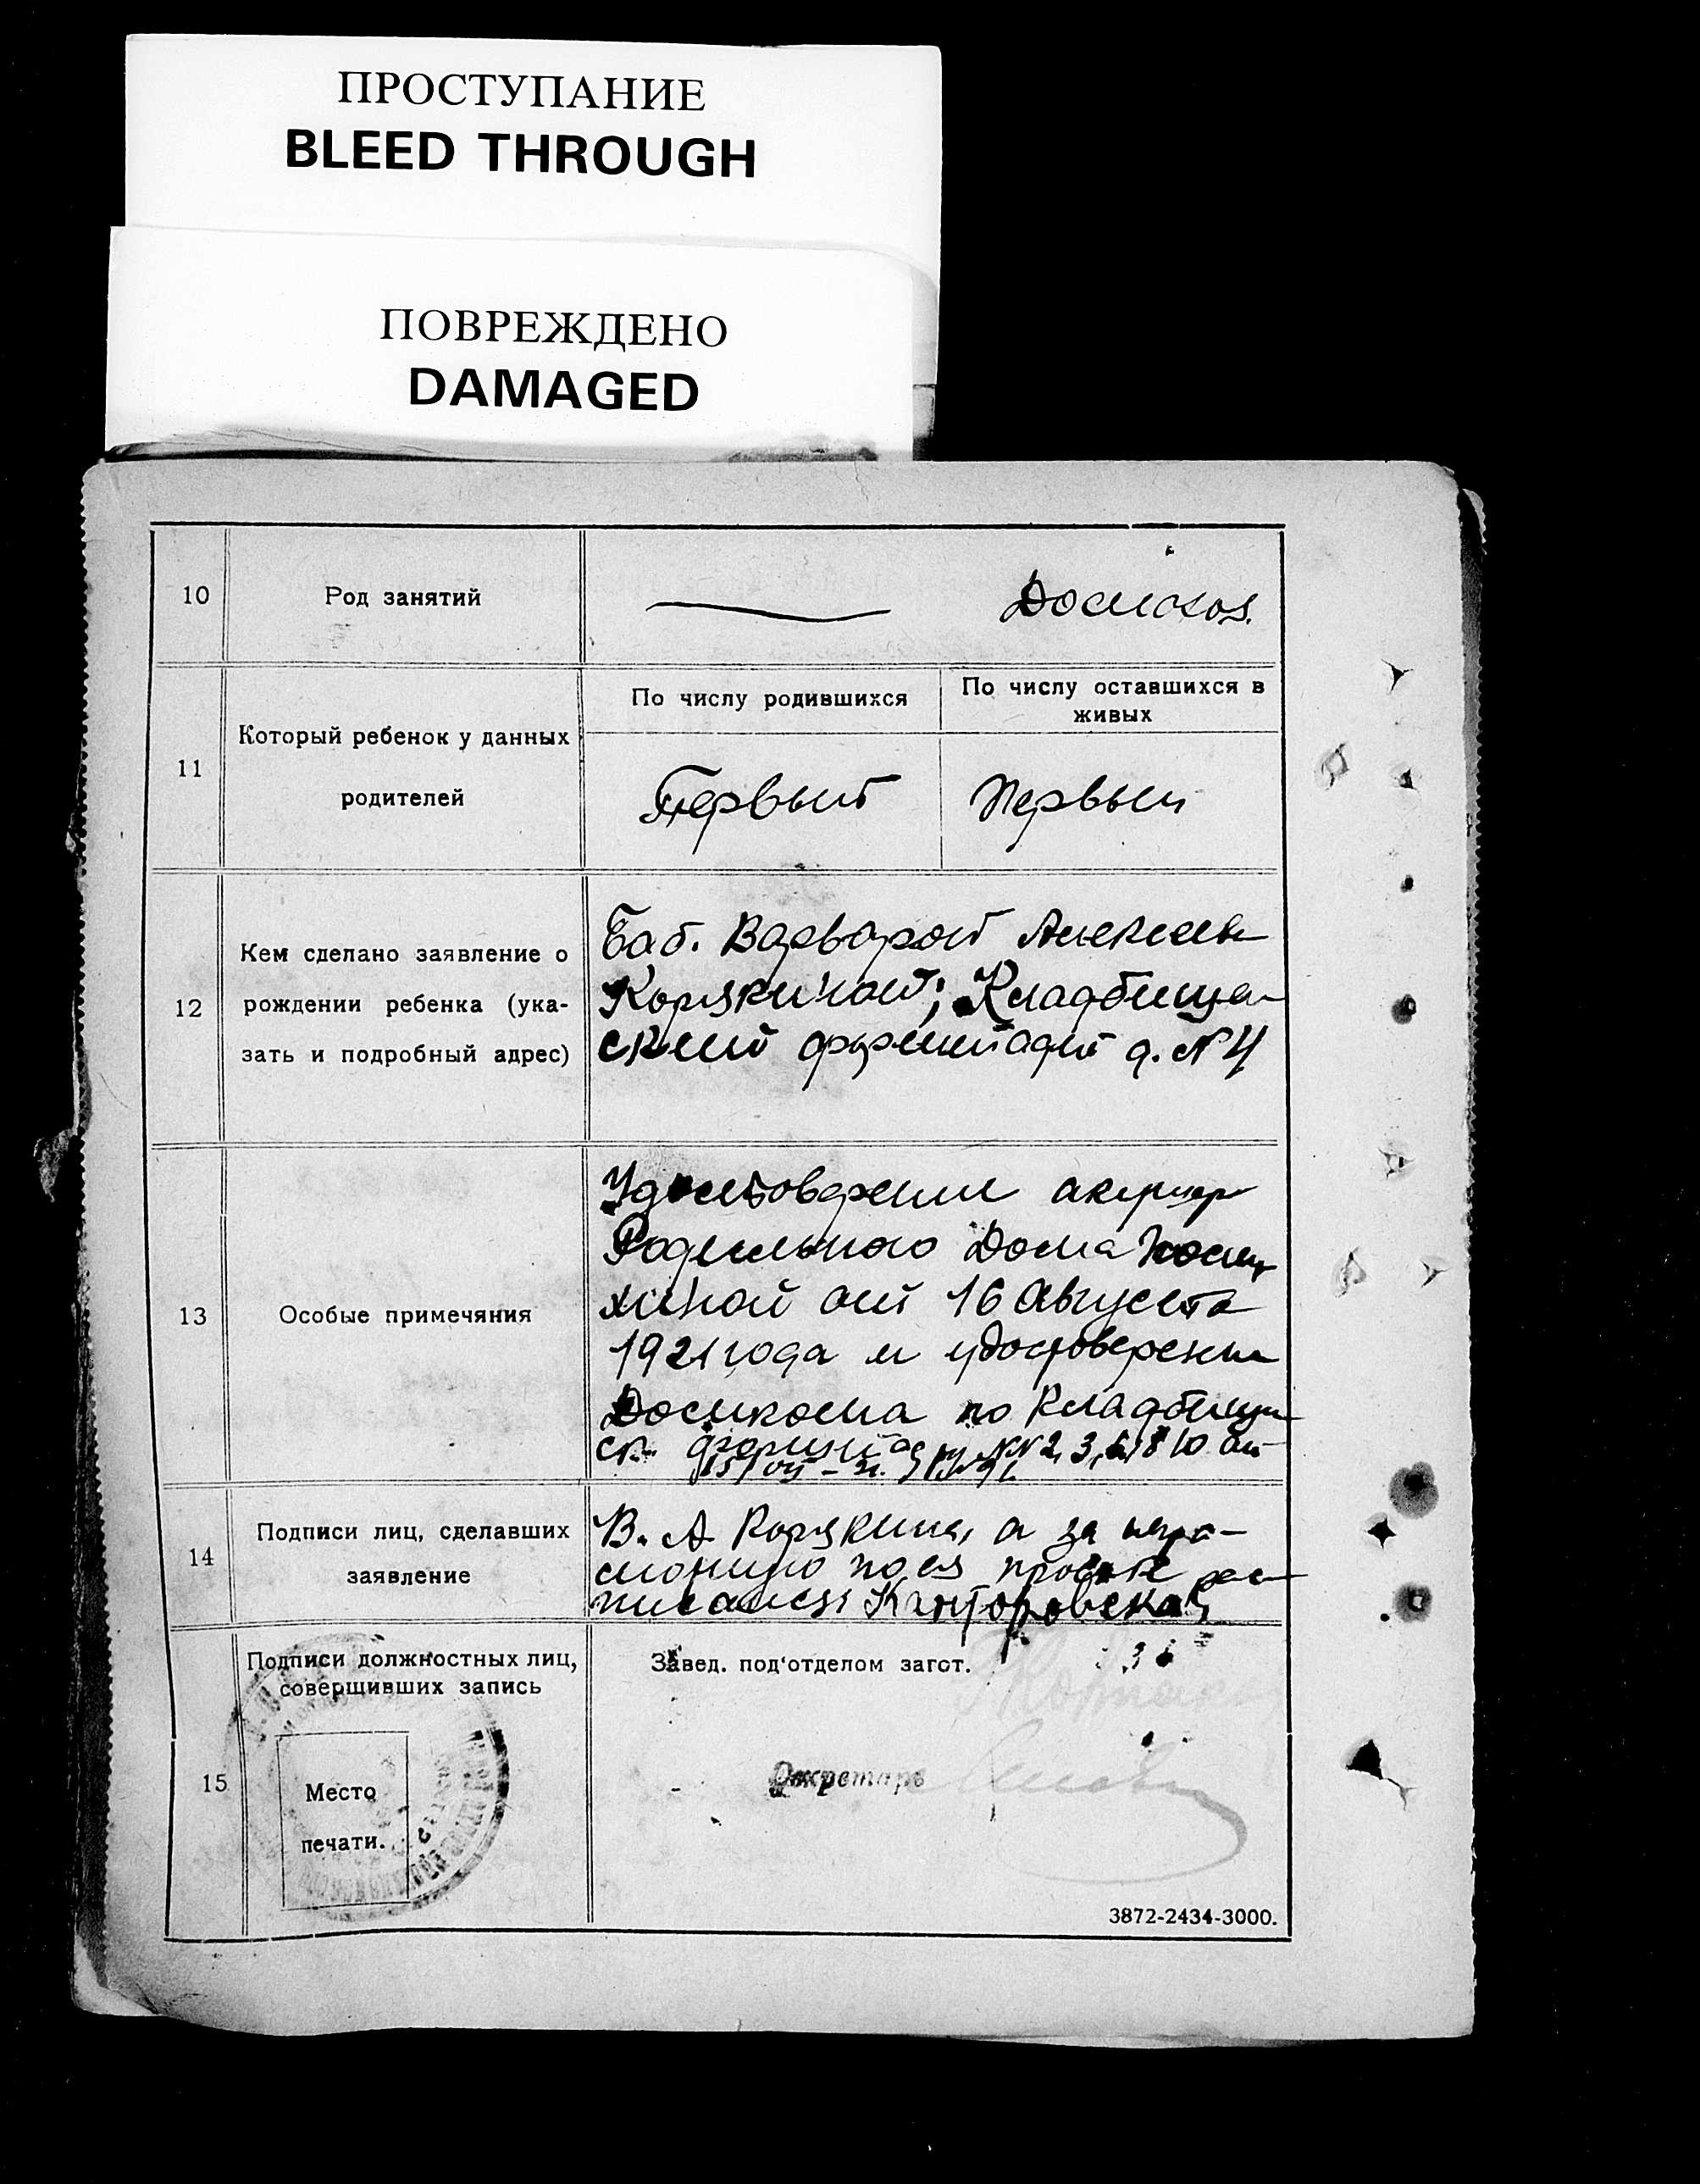 ПРОСТУПАНИЕ
BLEED THROUGH
ПОВРЕЖДЕНО
DAMAGED
10
Род занятий
Домохоз.
11
Который ребенок у данных
родителей
По числу родившихся
Первый
По числу оставшихся в
живых
Первый
12
Кем сделано заявление о
рождении ребенка (ука-
зать и подробный адрес)
Баб. Варварой Алексеев
Корякиной; Кладбищен
ский д. № 4
13
Особые примечяния
Удостоверении акушер
Родильного Дома
от 16 Августа
1921 года и удостоверени
Домкома по Кладбищен
ск. №№ 2, 3, 8 10 от
14
Подписи лиц, сделавших
заявление
В. А Корякина, а за негра-
мотную по ея просьбе рас
писалась Канторовская
15
Подписи должностных лиц,
соверщивших запись
Место
печати.
Завед. под‘отделом загст.
Секретарь
3872-2434-3000.